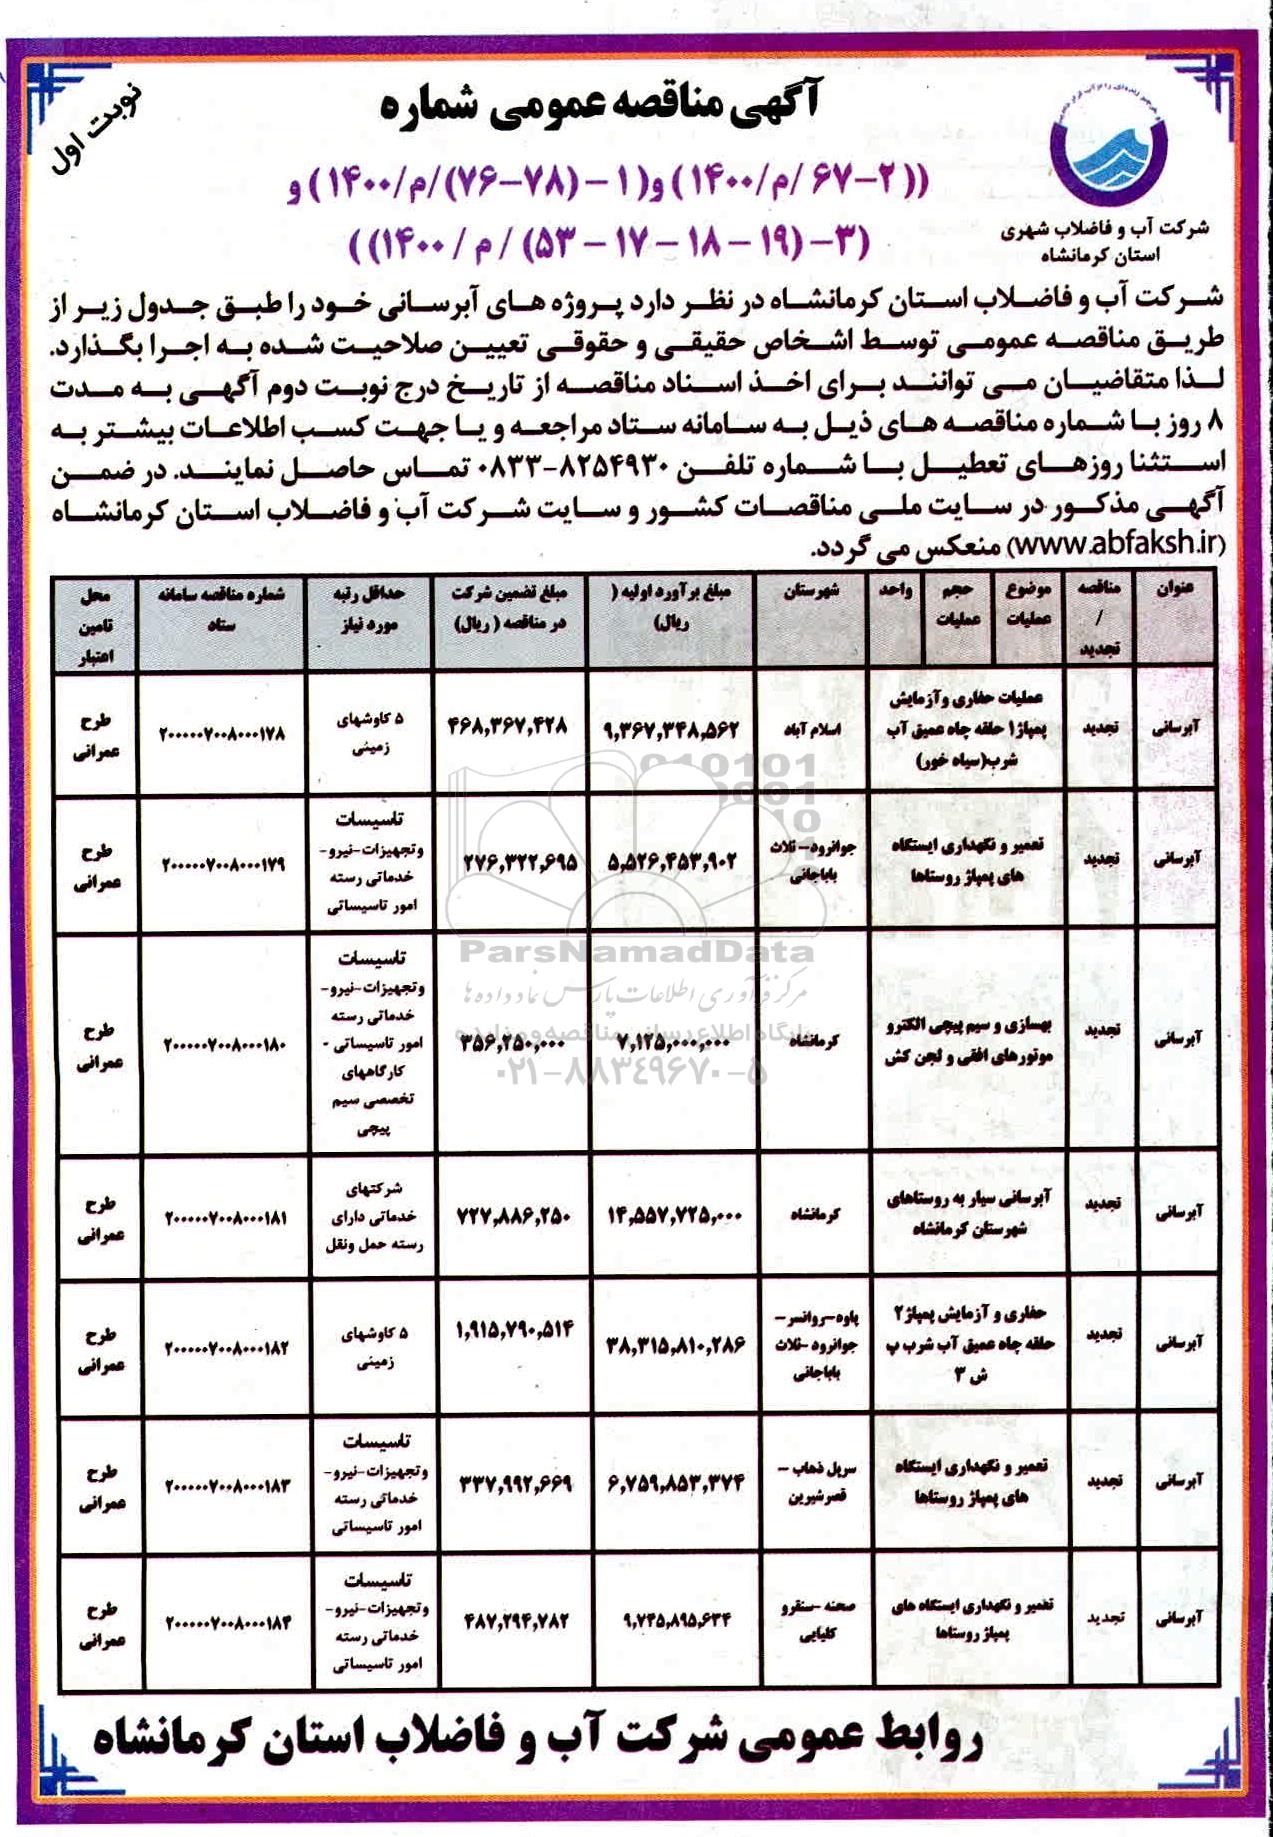 نوبت اول
آگهی مناقصه عمومی شماره
((۲-۶۷ /م/۱۴۰۰) و( ۱ - (۷۸-۷۶)/م/۱۴۰۰) و
(۳- (۱۹ - ۱۸ - ۱۷ - ۵۳) / م / ۱۴۰۰))
شرکت آب و فاضلاب شهری
استان کرمانشاه
شرکت آب و فاضلاب استان کرمانشاه در نظر دارد پروژه های آبرسانی خود را طبق جدول زیر از
طریق مناقصه عمومی توسط اشخاص حقیقی و حقوقی تعیین صلاحیت شده به اجرا بگذارد.
لذا متقاضیان می توانند برای اخذ اسناد مناقصه از تاریخ درج نوبت دوم آگهی به مدت
۸ روز با شماره مناقصه های ذیل به سامانه ستاد مراجعه و یا جهت کسب اطلاعات بیشتر به
استثنا روزهای تعطیل با شماره تلفن ۸۲۵۴۹۳۰-۰۸۳۳ تماس حاصل نمایند. در ضمن
آگهی مذکور در سایت ملی مناقصات کشور و سایت شرکت آب و فاضلاب استان کرمانشاه
(www.abfaksh.ir) منعکس می گردد.
عنوان | مناقصه / تجدید | موضوع عملیات | حجم عملیات | واحد | شهرستان | مبلغ برآورد اولیه ( ریال) | مبلغ تضمین شرکت در مناقصه ( ریال) | حداقل رتبه مورد نیاز | شماره مناقصه سامانه ستاد | محل تامین اعتبار
آبرسانی | تجدید | عملیات حفاری وآزمایش پمپاژ۱ حلقه چاه عمیق آب شرب(سیاه خور) | اسلام آباد | ۹,۳۶۷,۳۴۸,۵۶۲ | ۴۶۸,۳۶۷,۴۲۸ | ۵ کاوشهای زمینی | ۲۰۰۰۰۰۷۰۰۸۰۰۰۱۷۸ | طرح عمرانی
آبرسانی | تجدید | تعمیر و نگهداری ایستگاه های پمپاژ روستاها | جوانرود-ثلاث باباجانی | ۵,۵۲۶,۴۵۳,۹۰۲ | ۲۷۶,۳۲۲,۶۹۵ | تاسیسات وتجهیزات-نیرو-خدماتی رسته امور تاسیساتی | ۲۰۰۰۰۰۷۰۰۸۰۰۰۱۷۹ | طرح عمرانی
آبرسانی | تجدید | بهسازی و سیم پیچی الکترو موتورهای افقی و لجن کش | کرمانشاه | ۷,۱۲۵,۰۰۰,۰۰۰ | ۳۵۶,۲۵۰,۰۰۰ | تاسیسات وتجهیزات-نیرو-خدماتی رسته امور تاسیساتی - کارگاههای تخصصی سیم پیچی | ۲۰۰۰۰۰۷۰۰۸۰۰۰۱۸۰ | طرح عمرانی
آبرسانی | تجدید | آبرسانی سیار به روستاهای شهرستان کرمانشاه | کرمانشاه | ۱۴,۵۵۷,۷۲۵,۰۰۰ | ۷۲۷,۸۸۶,۲۵۰ | شرکتهای خدماتی دارای رسته حمل ونقل | ۲۰۰۰۰۰۷۰۰۸۰۰۰۱۸۱ | طرح عمرانی
آبرسانی | تجدید | حفاری و آزمایش پمپاژ۲ حلقه چاه عمیق آب شرب پ ش ۳ | پاوه-روانسر-جوانرود-ثلاث باباجانی | ۳۸,۳۱۵,۸۱۰,۲۸۶ | ۱,۹۱۵,۷۹۰,۵۱۴ | ۵ کاوشهای زمینی | ۲۰۰۰۰۰۷۰۰۸۰۰۰۱۸۲ | طرح عمرانی
آبرسانی | تجدید | تعمیر و نگهداری ایستگاه های پمپاژ روستاها | سرپل ذهاب - قصرشیرین | ۶,۷۵۹,۸۵۳,۳۷۴ | ۳۳۷,۹۹۲,۶۶۹ | تاسیسات وتجهیزات-نیرو-خدماتی رسته امور تاسیساتی | ۲۰۰۰۰۰۷۰۰۸۰۰۰۱۸۳ | طرح عمرانی
آبرسانی | تجدید | تعمیر و نگهداری ایستگاه های پمپاژ روستاها | صحنه-سنقرو کلیایی | ۹,۷۴۵,۸۹۵,۶۳۴ | ۴۸۷,۲۹۴,۷۸۲ | تاسیسات وتجهیزات-نیرو-خدماتی رسته امور تاسیساتی | ۲۰۰۰۰۰۷۰۰۸۰۰۰۱۸۴ | طرح عمرانی
ParsNamadData
مرکز فرآوری اطلاعات پارس نماد داده ها
پایگاه اطلاع رسانی مناقصه و مزایده
۰۲۱-۸۸۳۴۹۶۷۰-۵
روابط عمومی شرکت آب و فاضلاب استان کرمانشاه